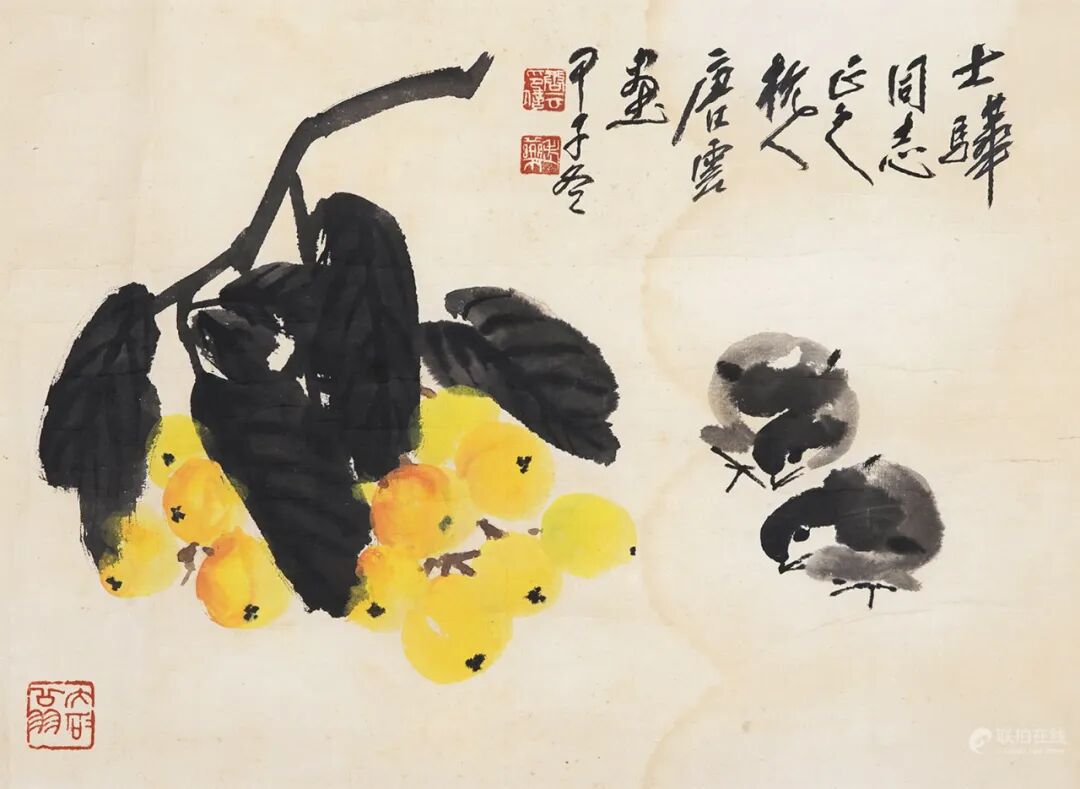 士驊
同志
正之
杭人
唐雲
畫
甲子冬
大石翁
联拍在线